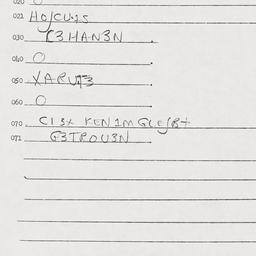 020 O
021 HO/CU.IS
030 C3HAN3N.
040 O.
050 XARUT3.
060 O.
070 C13X KEN1M
071 G3TROU3N.